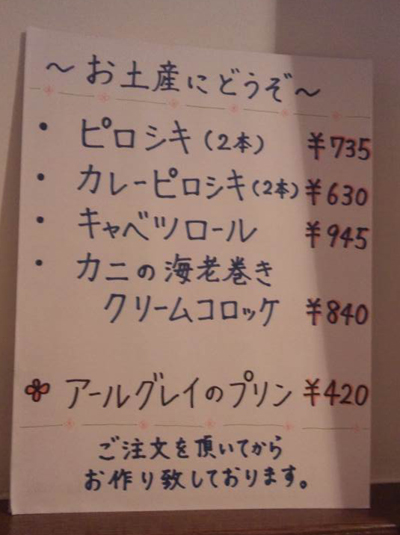 ～お土産にどうぞ～
・ピロシキ(2本) ¥735
・カレーピロシキ(2本) ¥630
・キャベツロール ¥945
・カニの海老巻き
クリームコロッケ ¥840
アールグレイのプリン ¥420
ご注文を頂いてから
お作り致しております。